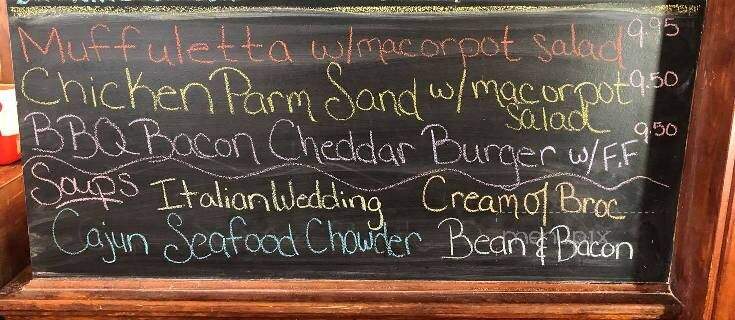 Muffuletta w/macorpot salad 9.95
Chicken Parm Sand w/macorpot 9.50
Salad
BBQ Bacon Cheddar Burger w/F.F 9.50
Soups Italian Wedding Cream of Broc
Cajun Seafood Chowder Bean & Bacon